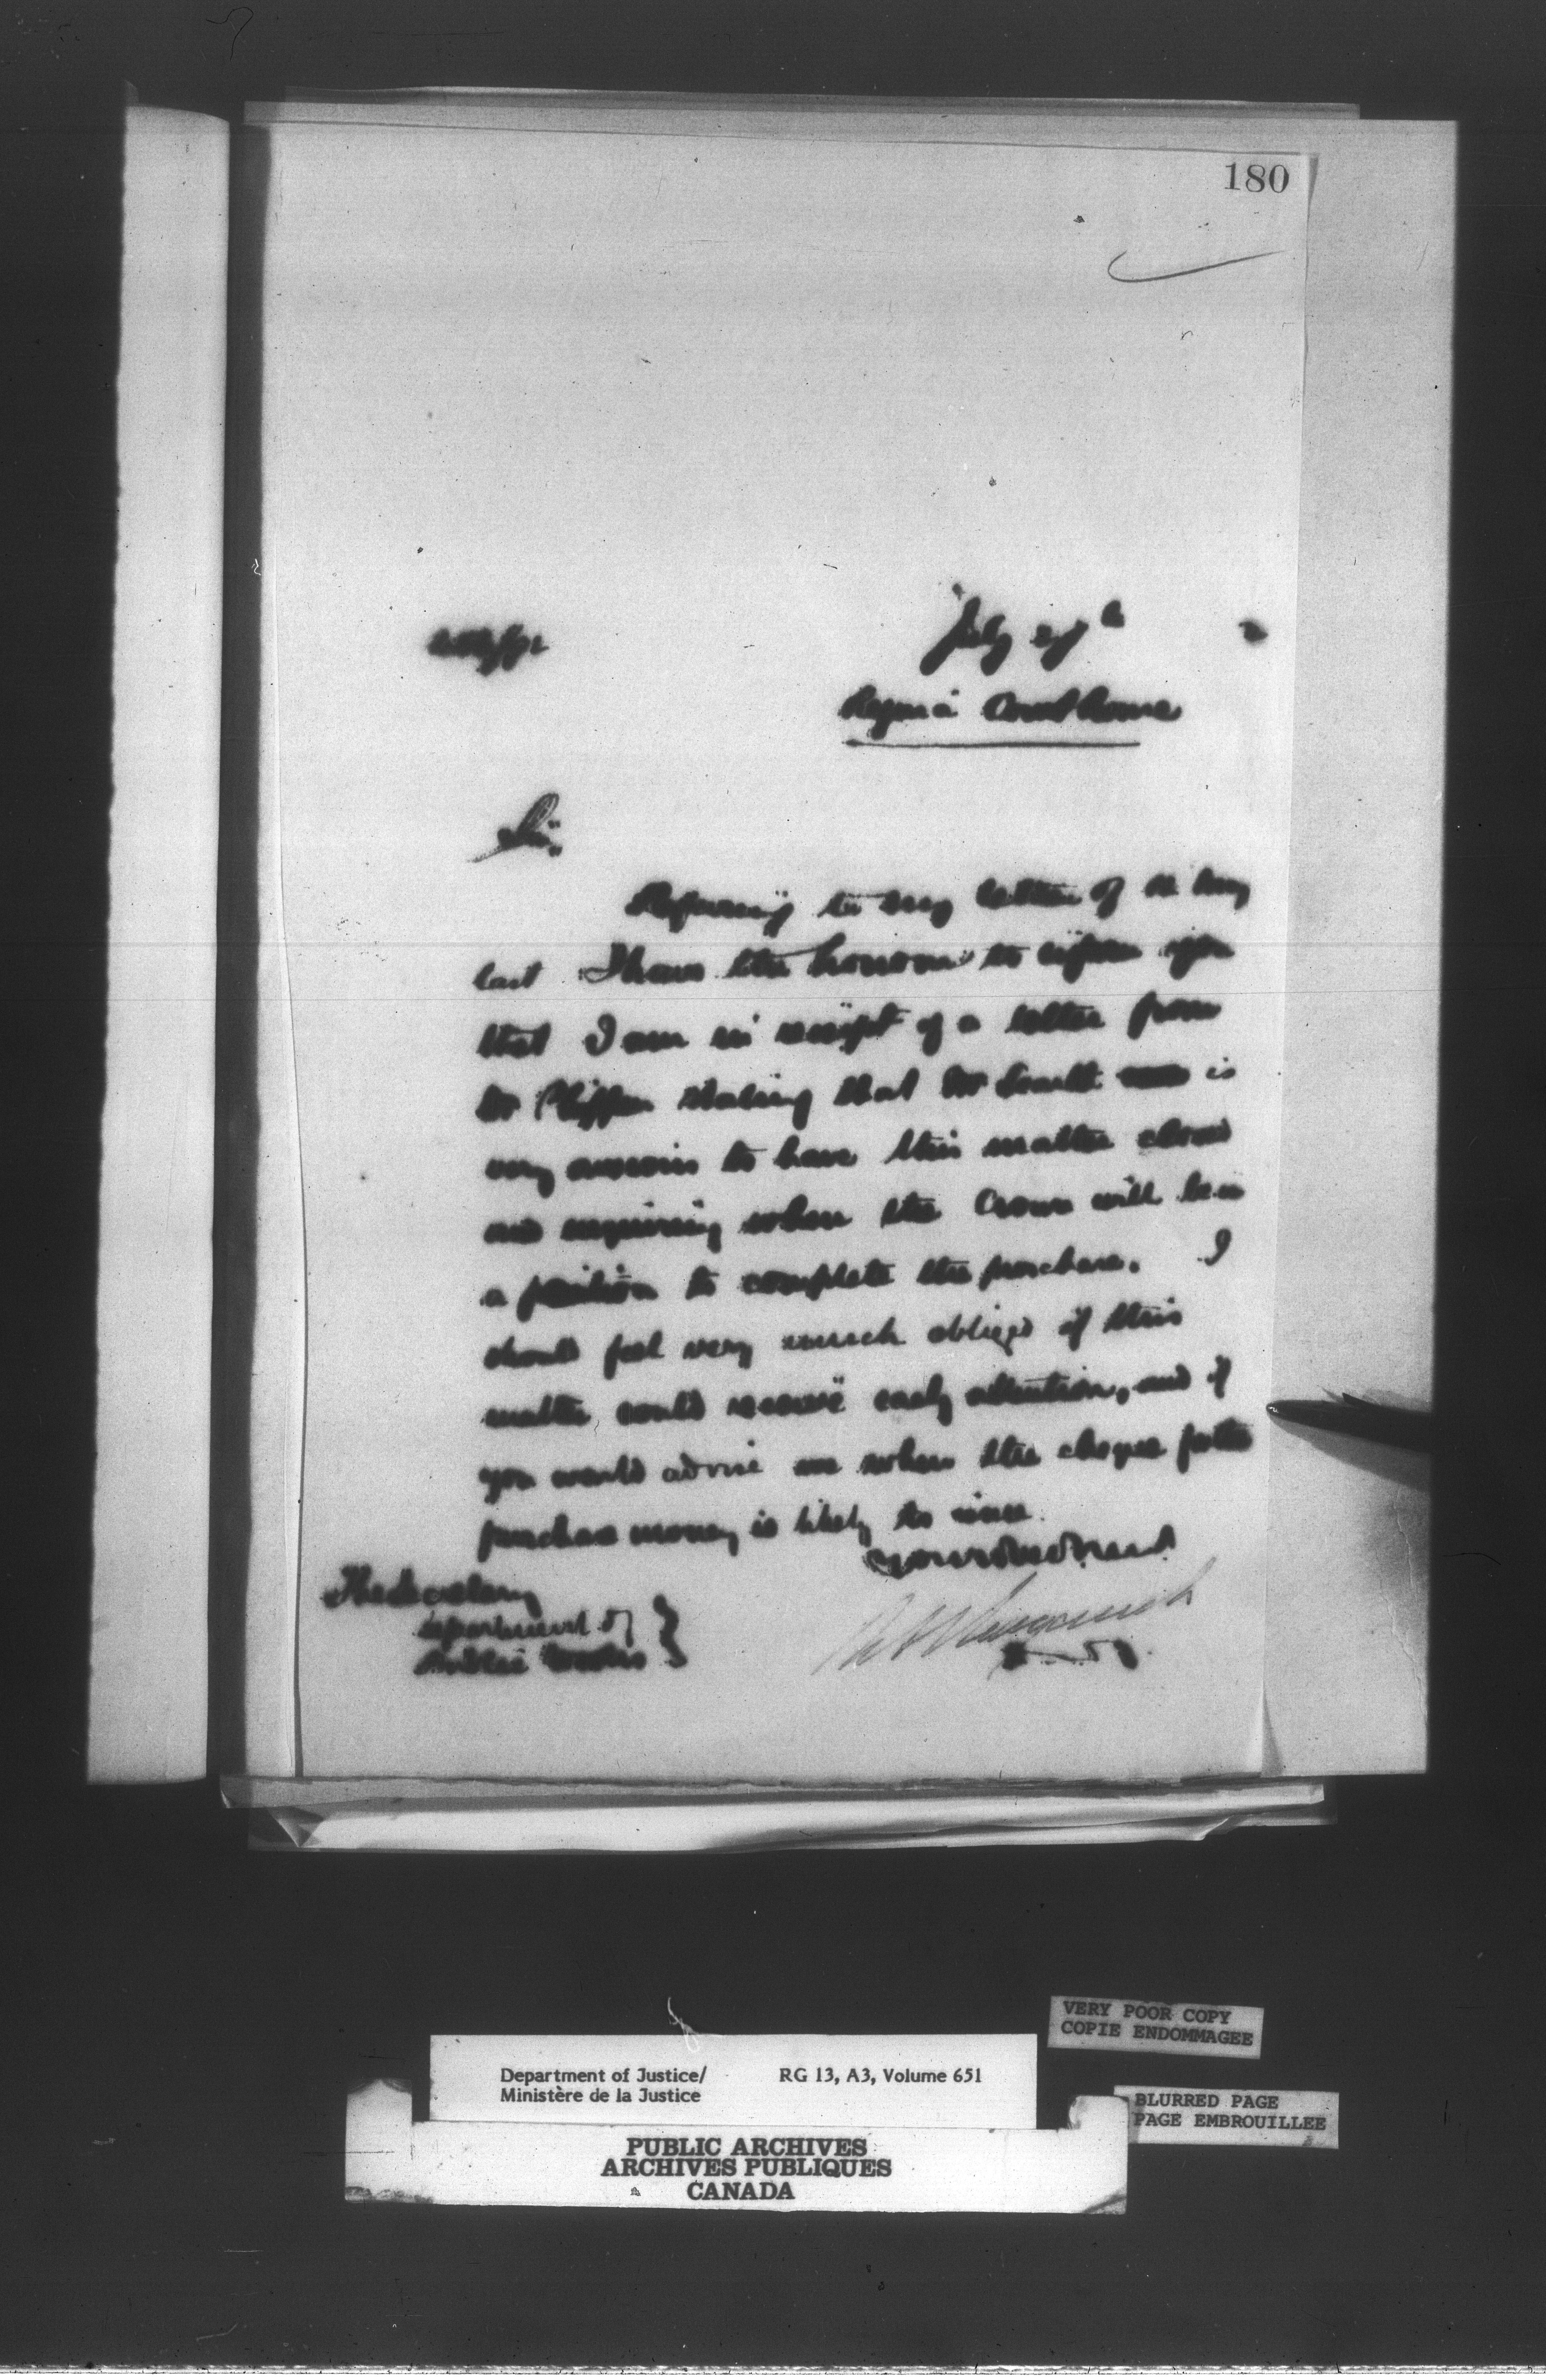 180
July 27th
Regina Court house
Sir.
Referring to my letter of May
last I have the honour to inform you
that I am in receipt of a letter from
Mr stating that Mr is
very anxious to have this matter closed
and enquiring when the Crown will be in
a position to complete the purchase. I
should feel very much obliged if this
matter could receive early attention, and if
you would advise me when the cheque for the
purchase money is likely to issue.
Your obedient
The Secretary
Department of
Public Works
VERY POOR COPY
COPIE ENDOMMAGEE
Department of Justice/ RG 13, A3, Volume 651
Ministère de la Justice
BLURRED PAGE
PAGE EMBROUILLEE
PUBLIC ARCHIVES
ARCHIVES PUBLIQUES
CANADA